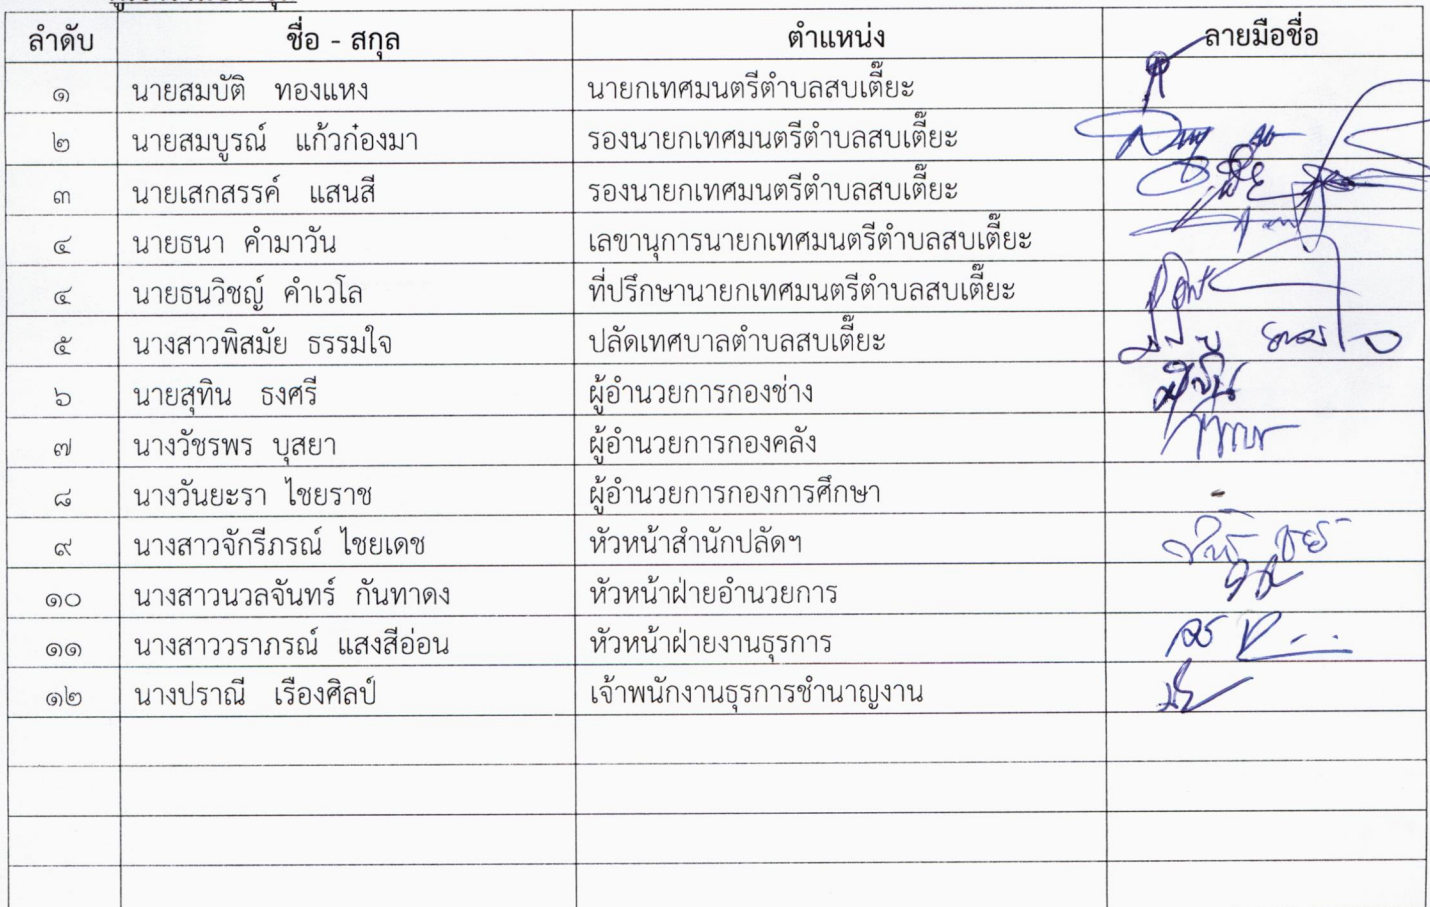 ลำดับ ชื่อ - สกุล ตำแหน่ง ลายมือชื่อ
๑ นายสมบัติ ทองแหง นายกเทศมนตรีตำบลสบเตี๊ยะ
๒ นายสมบูรณ์ แก้วก๋องมา รองนายกเทศมนตรีตำบลสบเตี๊ยะ
๓ นายเสกสรรค์ แสนสี รองนายกเทศมนตรีตำบลสบเตี๊ยะ
๔ นายธนา คำมาวัน เลขานุการนายกเทศมนตรีตำบลสบเตี๊ยะ
๔ นายธนวิชญ์ คำเวโล ที่ปรึกษานายกเทศมนตรีตำบลสบเตี๊ยะ
๕ นางสาวพิสมัย ธรรมใจ ปลัดเทศบาลตำบลสบเตี๊ยะ
๖ นายสุทิน ธงศรี ผู้อำนวยการกองช่าง
๗ นางวัชรพร บุสยา ผู้อำนวยการกองคลัง
๘ นางวันยะรา ไชยราช ผู้อำนวยการกองการศึกษา -
๙ นางสาวจักรีภรณ์ ไชยเดช หัวหน้าสำนักปลัดฯ
๑๐ นางสาวนวลจันทร์ กันทาดง หัวหน้าฝ่ายอำนวยการ
๑๑ นางสาววราภรณ์ แสงสีอ่อน หัวหน้าฝ่ายงานธุรการ
๑๒ นางปราณี เรืองศิลป์ เจ้าพนักงานธุรการชำนาญงาน